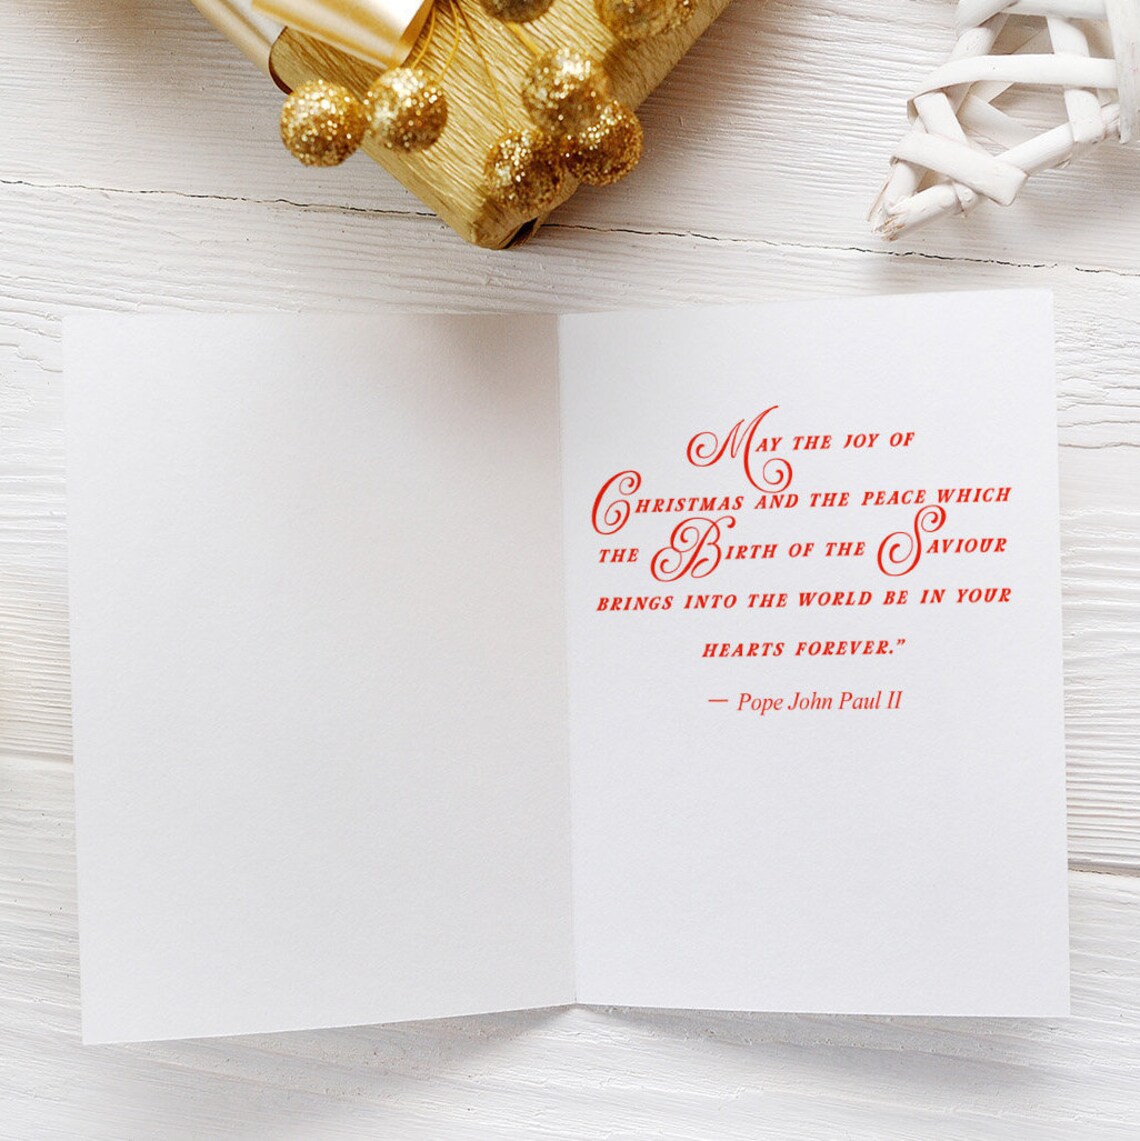 May the joy of
Christmas and the peace which
the Birth of the Saviour
brings into the world be in your
hearts forever.”
— Pope John Paul II